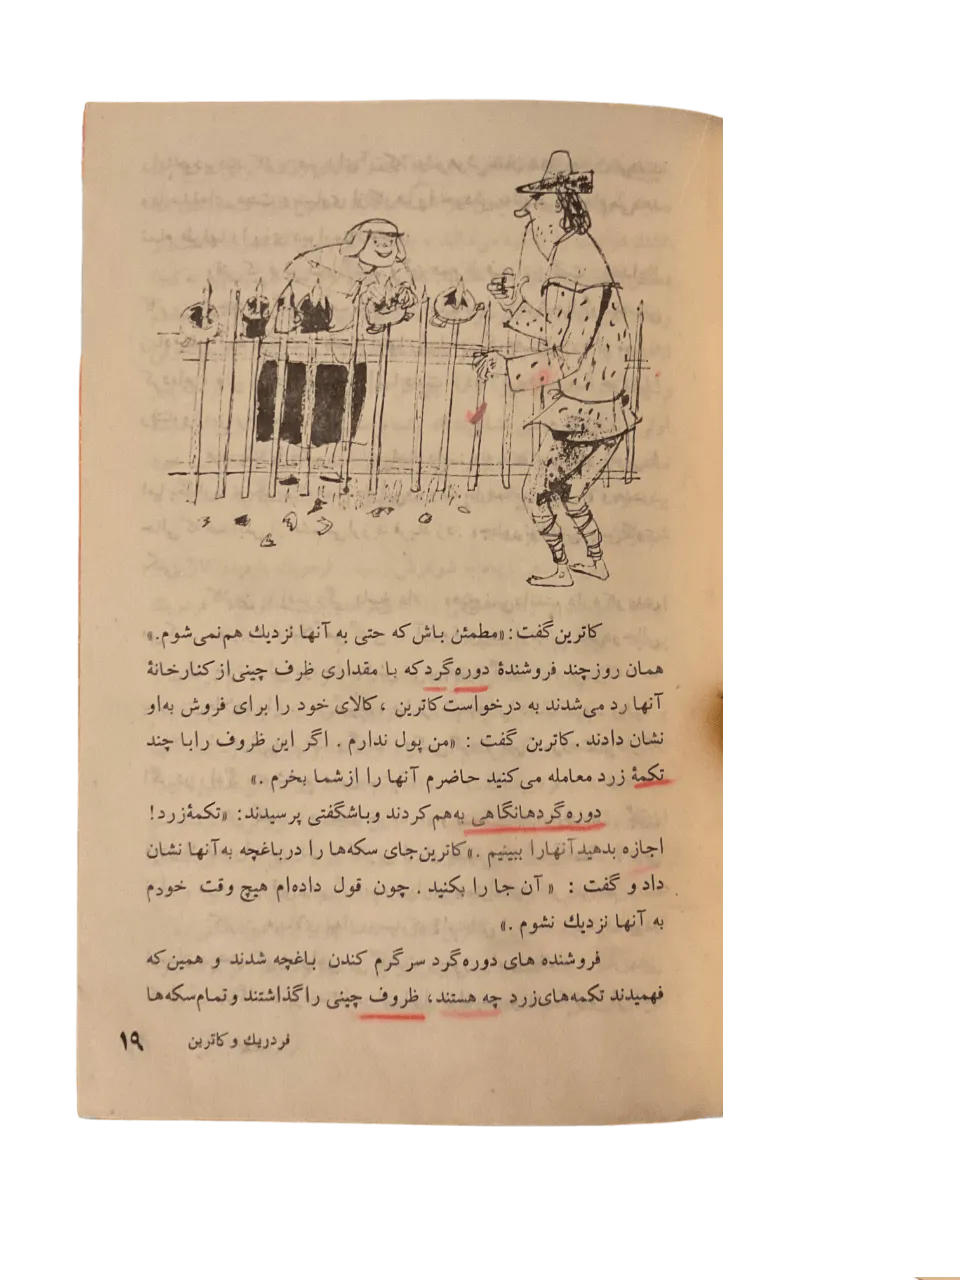 کاترین گفت: «مطمئن باش که حتی به آنها نزدیك هم نمی‌شوم.»
همان روز چند فروشندهٔ دوره‌گرد که با مقداری ظرف چینی از کنار خانهٔ
آنها رد می‌شدند به درخواست کاترین ، کالای خود را برای فروش به او
نشان دادند . کاترین گفت : «من پول ندارم . اگر این ظروف را با چند
تکمهٔ زرد معامله می‌کنید حاضرم آنها را از شما بخرم .»
دوره‌گردها نگاهی به‌هم کردند و باشگفتی پرسیدند: «تکمهٔ زرد!
اجازه بدهید آنها را ببینیم .» کاترین جای سکه‌ها را در باغچه به آنها نشان
داد و گفت : « آن جا را بکنید . چون قول داده‌ام هیچ وقت خودم
به آنها نزدیك نشوم .»
فروشنده های دوره‌گرد سرگرم کندن باغچه شدند و همین که
فهمیدند تکمه‌های زرد چه هستند، ظروف چینی را گذاشتند و تمام سکه‌ها
فردریك و کاترین ۱۹